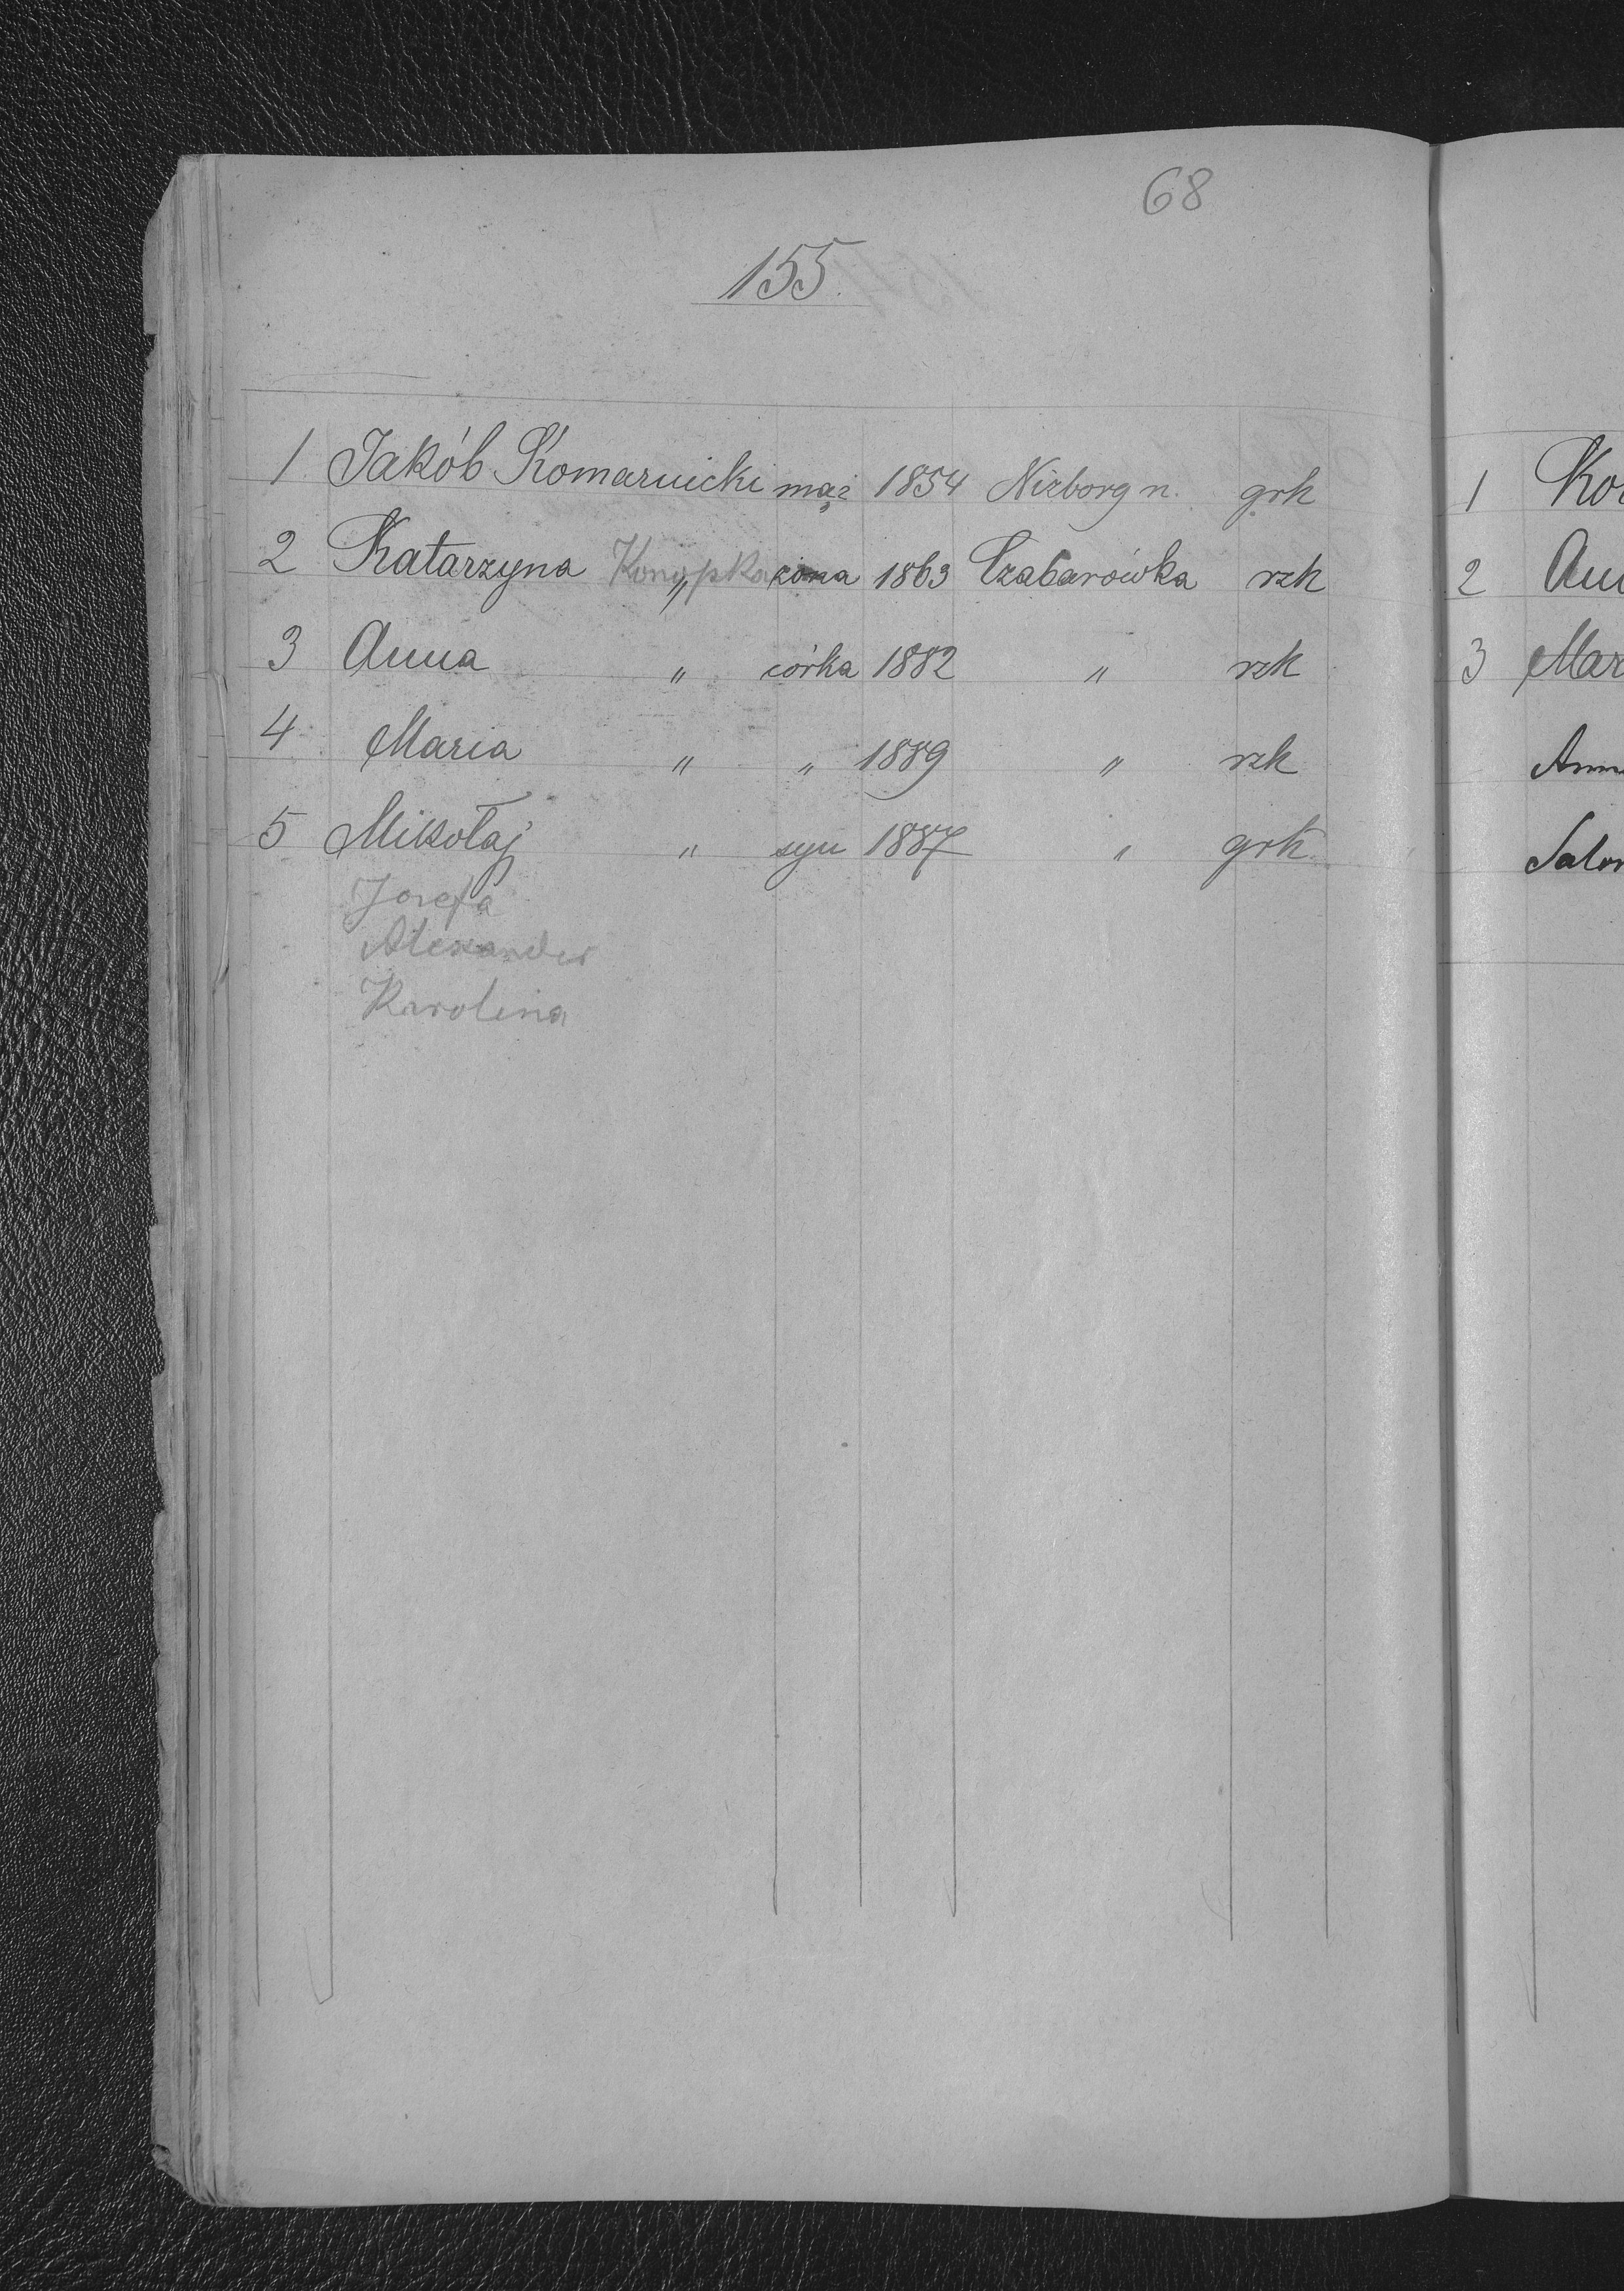 68
155.
1 Jakób Komarnicki mąż 1854 Niżborg n. grk
2 Katarzyna Konopka " żona 1863 Czabarówka rzk
3 Anna " córka 1882 " rzk
4 Maria " " 1889 " rzk
5 Mikołaj " syn 1887 " grk
Józefa
Alexander
Karolina
1
2
3